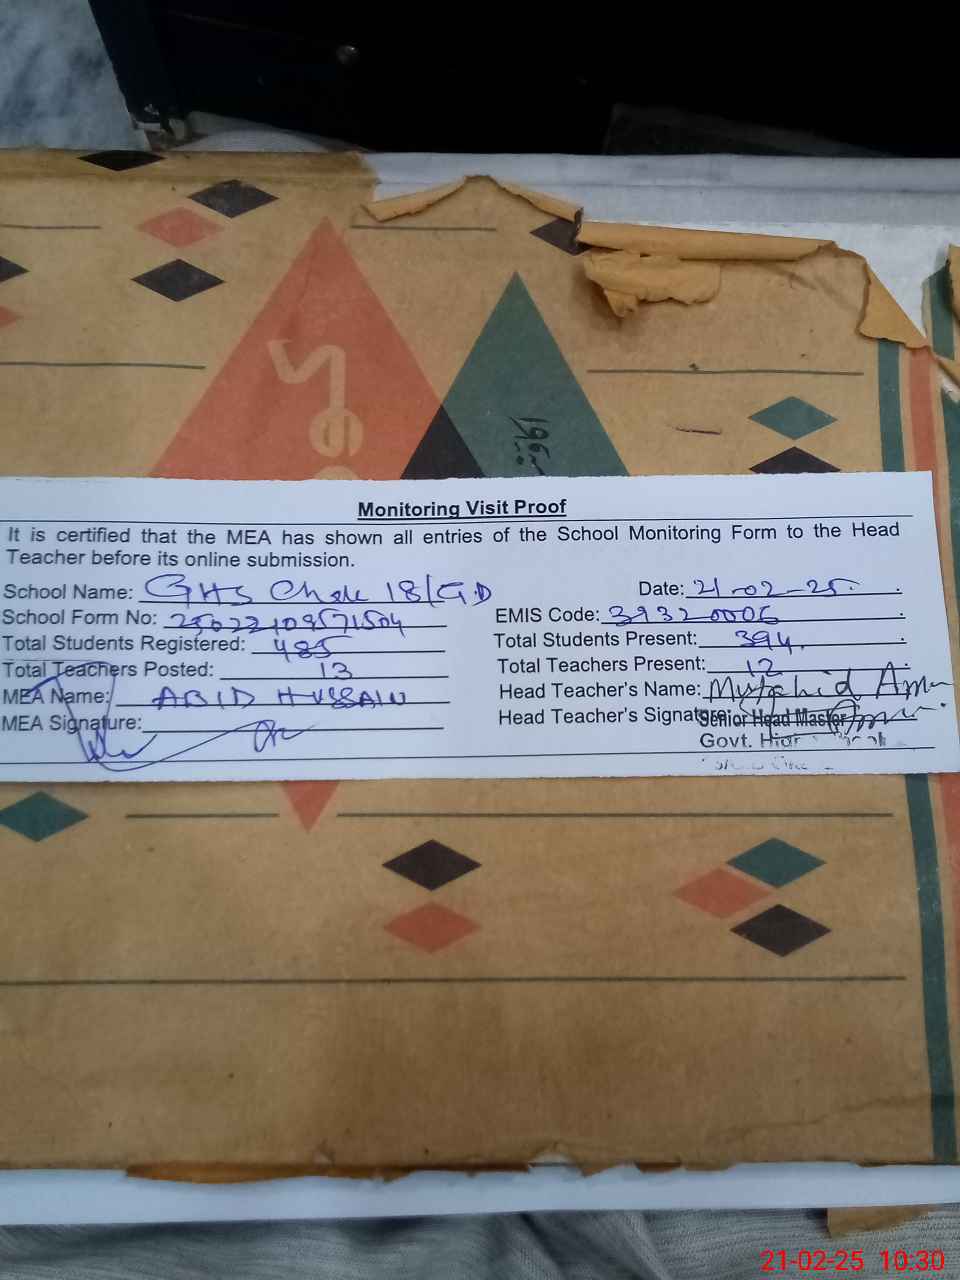 Monitoring Visit Proof
It is certified that the MEA has shown all entries of the School Monitoring Form to the Head
Teacher before its online submission.
School Name: GHS Chak 18/GD Date: 21-02-25
School Form No: EMIS Code: 39320006
Total Students Registered: 485 Total Students Present: 394
Total Teachers Posted: 13 Total Teachers Present: 12
MEA Name: ABID HUSSAIN Head Teacher's Name:
MEA Signature: Head Teacher's Signature:
Senior Head Master
Govt.
21-02-25 10:30